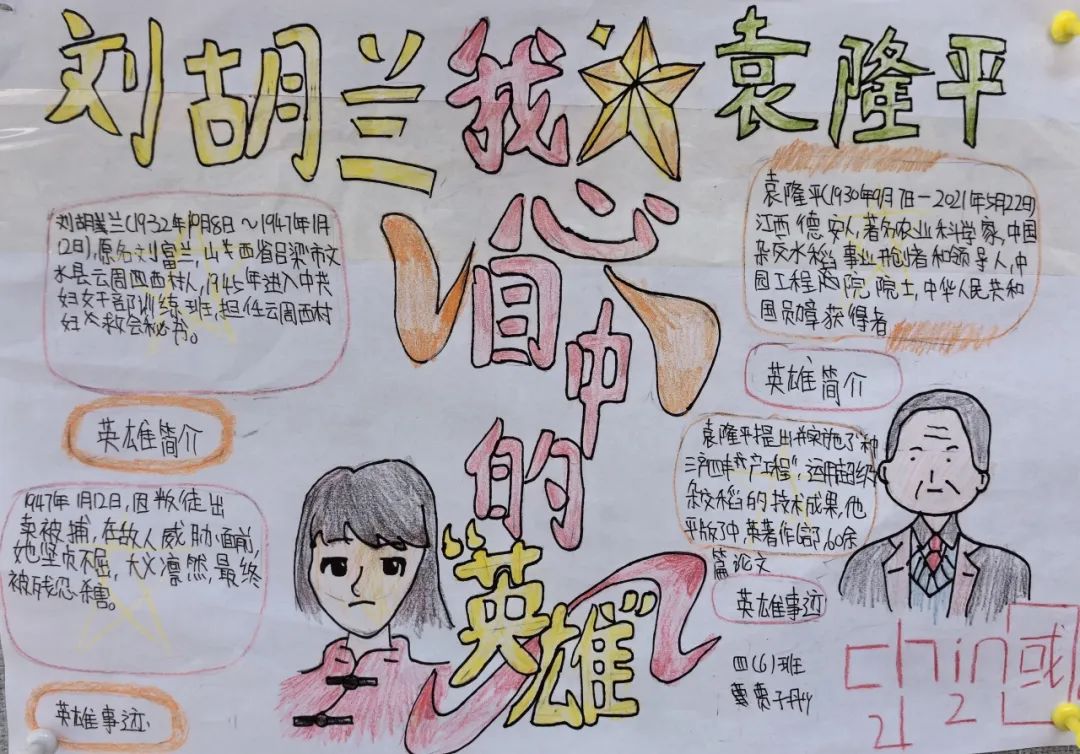 刘胡兰
我心目中的"英雄"
袁隆平
刘胡兰(1932年10月8日～1947年1月
12日),原名刘富兰,山西省吕梁市文
水县云周西村人,1945年进入中共
妇女干部训练班,担任云周西村
妇女救会秘书。
英雄简介
1947年1月12日,因叛徒出
卖被捕,在敌人威胁面前,
她坚贞不屈,大义凛然,最终
被残忍杀害。
英雄事迹
袁隆平(1930年9月7日—2021年5月22日)
江西德安人,著名农业科学家,中国
杂交水稻事业开创者和领导人,中
国工程院院士,中华人民共和
国勋章获得者
英雄简介
袁隆平提出并实施了"种
三产四丰产工程",运用超级
杂交稻的技术成果,他
出版了中,英著作6部,60余
篇论文
英雄事迹
四(6)班
子丹
Chin国
2 2